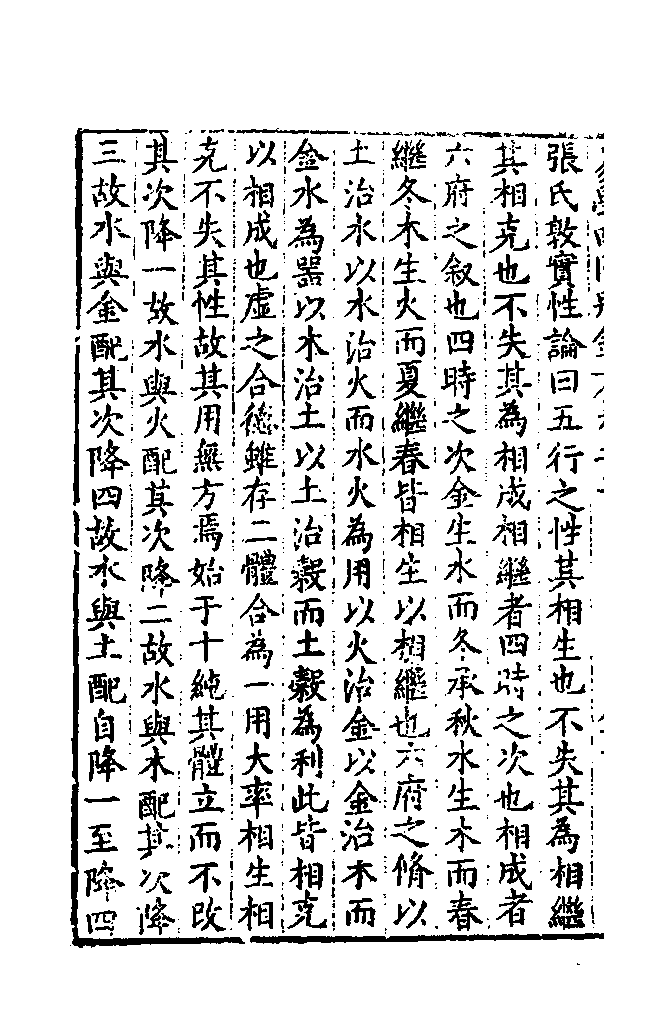 張氏敦實性論曰五行之性其相生也不失其為相繼
其相克也不失其為相成相繼者四時之次也相成者
六府之叙也四時之次金生水而冬承秋水生木而春
繼冬木生火而夏繼春皆相生以相繼也六府之脩以
土治水以水治火而水火為用以火治金以金治木而
金木為器以木治土以土治榖而土榖為利此皆相克
以相成也虛之合德雖存二體合為一用大率相生相
克不失其性故其用無方焉始于十純其體立而不改
其次降一故水與火配其次降二故水與木配其次降
三故水與金配其次降四故水與土配自降一至降四